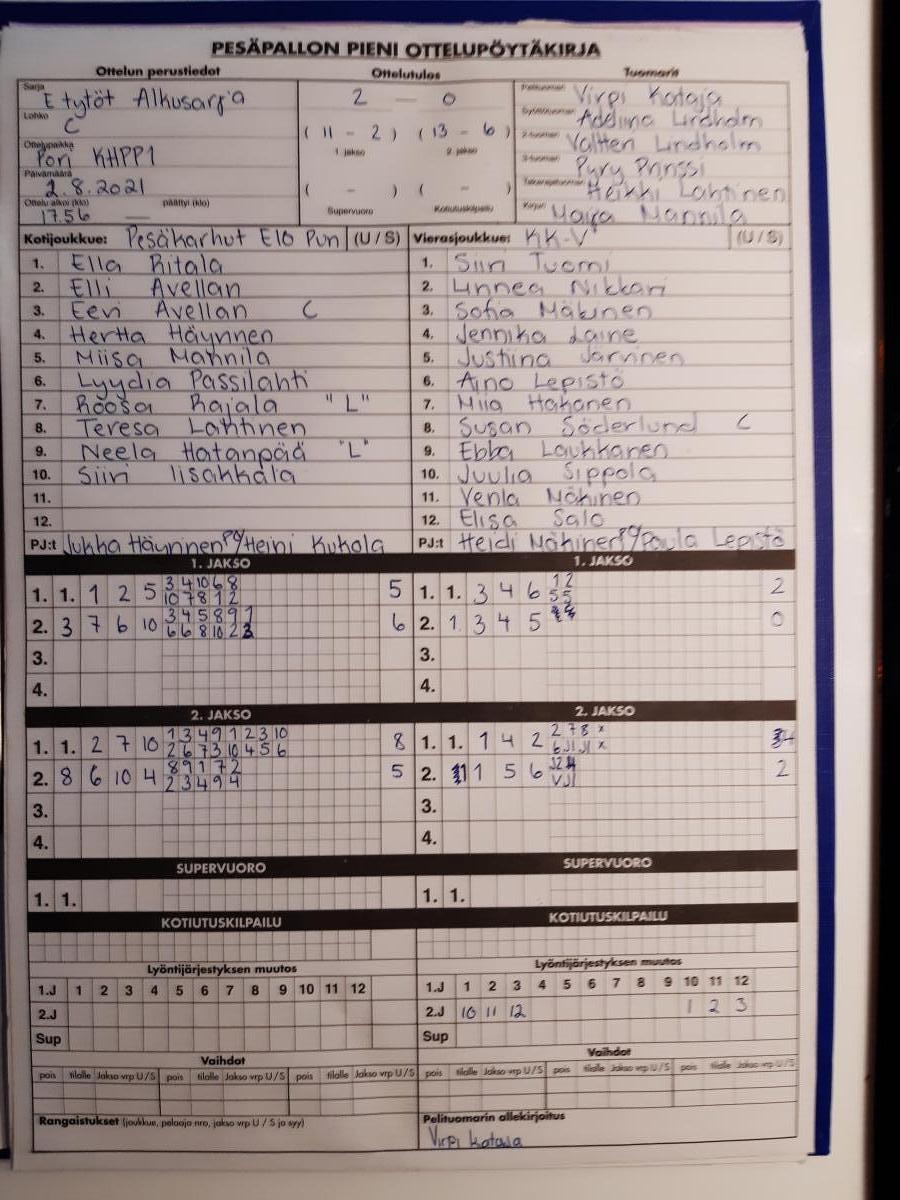 PESÄPALLON PIENI OTTELUPÖYTÄKIRJA
Ottelun perustiedot Ottelutulos Tuomarit
Sarja E tytöt Alkusarja 2 — 0 Pelituomari Virpi Kataja
Lohko C Syöttötuomari Adeliina Lindholm
( 11 - 2 ) ( 13 - 6 ) 2-tuomari Valtteri Lindholm
Ottelupaikka Pori KHPP1 1. jakso 2. jakso 3-tuomari Pyry Prinssi
Päivämäärä 2.8.2021 ( - ) ( - ) Takarajatuomari Heikki Lahtinen
Ottelu alkoi (klo) 17.56 — päättyi (klo) Supervuoro Kotiutuskilpailu Kirjuri Maija Mannila
Kotijoukkue: Pesäkarhut E10 Pun (U / S) Vierasjoukkue: KK-V (U / S)
1. Ella Ritala 1. Siiri Tuomi
2. Elli Avellan 2. Linnea Nikkari
3. Eevi Avellan C 3. Sofia Mäkinen
4. Hertta Häyrinen 4. Jennika Laine
5. Miisa Mannila 5. Justiina Järvinen
6. Lyydia Passilahti 6. Aino Lepistö
7. Roosa Rajala "L" 7. Miia Hakanen
8. Teresa Lahtinen 8. Susan Söderlund C
9. Neela Hatanpää "L" 9. Ebba Laukkanen
10. Siiri Iisakkala 10. Juulia Sippola
11. 11. Venla Mäkinen
12. 12. Elisa Salo
PJ:t Jukka Häyrinen PJ/Heini Kukola PJ:t Heidi Mäkinen PJ/Paula Lepistö
1. JAKSO 1. JAKSO
1. 1. 1 2 5 3 4 10 6 8 5 1. 1. 3 4 6 1 2 2
10 7 8 1 2 5 5
2. 3 7 6 10 3 4 5 8 9 1 6 2. 1 3 4 5 0
6 6 8 10 2 3
3. 3.
4. 4.
2. JAKSO 2. JAKSO
1. 1. 2 7 10 1 3 4 9 1 2 3 10 8 1. 1. 1 4 2 2 7 8 x 4
2 6 7 3 10 4 5 6
2. 8 6 10 4 8 9 1 7 2 5 2. 1 5 6 2
2 3 4 9 4
3. 3.
4. 4.
SUPERVUORO SUPERVUORO
1. 1. 1. 1.
KOTIUTUSKILPAILU KOTIUTUSKILPAILU
Lyöntijärjestyksen muutos Lyöntijärjestyksen muutos
1.J 1 2 3 4 5 6 7 8 9 10 11 12 1.J 1 2 3 4 5 6 7 8 9 10 11 12
2.J 2.J 10 11 12 1 2 3
Sup Sup
Vaihdot Vaihdot
pois tilalle Jakso vrp U/S pois tilalle Jakso vrp U/S pois tilalle Jakso vrp U/S pois tilalle Jakso vrp U/S pois tilalle Jakso vrp U/S pois tilalle Jakso vrp U/S
Rangaistukset (joukkue, pelaaja nro, jakso vrp U / S ja syy) Pelituomarin allekirjoitus
Virpi Kataja